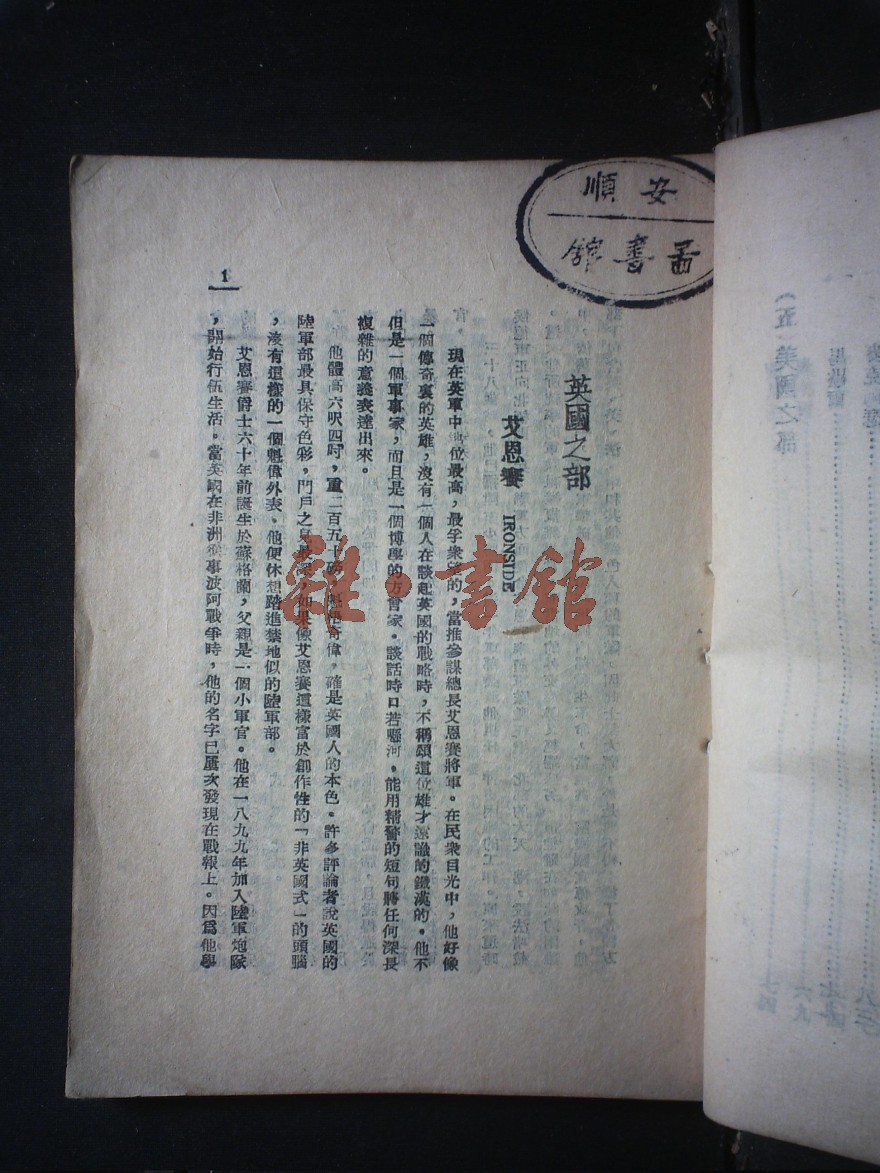 順安
圕書館
英國之部
艾恩賽 IRONSIDE
現在英軍中地位最高,最孚衆望的,當推參謀總長艾恩賽將軍。在民衆目光中,他好像
一個傳奇裏的英雄,沒有一個人在談起英國的戰略時,不稱頌這位雄才遠識的鐵漢的。他不
但是一個軍事家,而且是一個博學的方言家。談話時口若懸河。能用精警的短句將任何深長
複雜的意義表達出來。
他體高六呎四吋,重二百五十磅,魁梧奇偉。確是英國人的本色。許多評論者說英國的
陸軍部最具保守色彩,門戶之見最深,如果像艾恩賽這樣富於創作性的「非英國式」的頭腦
,沒有這樣的一個魁偉外表。他便休想踏進禁地似的陸軍部。
艾恩賽爵士六十年前誕生於蘇格蘭,父親是一個小軍官。他在一八九九年加入陸軍炮隊
,開始行伍生活。當英國在非洲從事波阿戰爭時,他的名字已屢次發現在戰報上。因爲他學
1
雜·書館
(五)美國之部